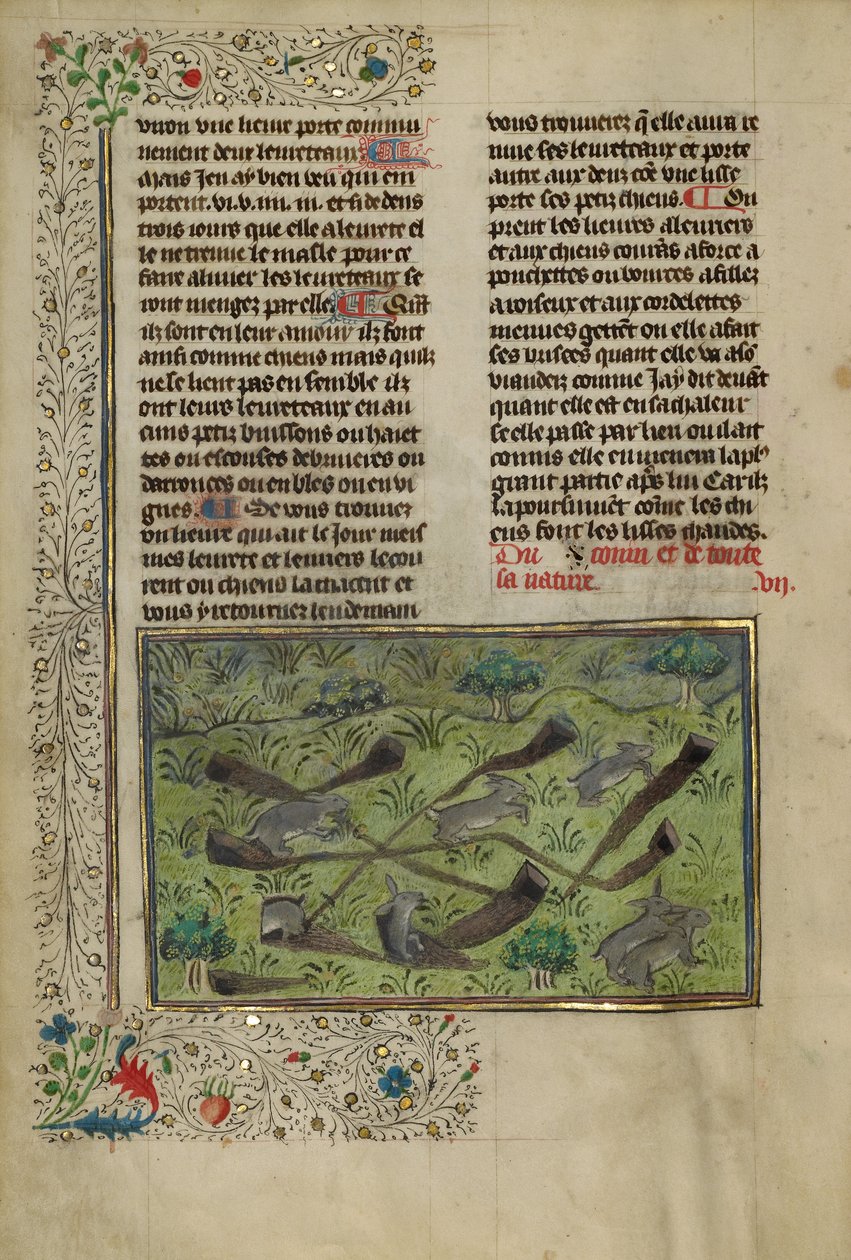 vnon vne lieure porte commu
nement deux leureteaux
Mais Jen ay bien veu qui em
portent .vi.v.iiii.iii. et si dedens
trois iours que elle a leurete el
le ne treuue le masle pour ce
faire aliuier les leureteaux se
ront mengez par elle Quāt
ilz sont en leur amour ilz font
ainsi comme chiens mais quilz
ne se lient pas en semble ilz
ont leurs leureteaux en au
cuns petiz buissons ou haiet
tes ou escouses de bruieres ou
darronces ou en bles ou en vi
gnes. Se vous trouuez
vn lieure qui ait le Jour meis
mes leurete et leuriers le cou
rent ou chiens la chacent et
vous y retournez lendemain
vous trouuerez q̄ elle aura re
mue ses leureteaux et porte
autre aux denz cōe vne lisse
porte ses petiz chiens. Ou
prent les lieures a leuriers
et aux chiens courās a force a
pouchettes ou bources a fillez
a roiseux et aux cordelettes
menues gettēt ou elle a fait
ses brisees quant elle va a ses
viandeiz comme Jay dit deuāt
quant elle est en sa chaleur
se elle passe par lieu ou il ait
connis elle en menera la plus
grant partie apres lui Car ilz
la poursuiuēt cōme les chi
ens font les lisses chaudes.
Du connin et de toute
sa nature .vii.